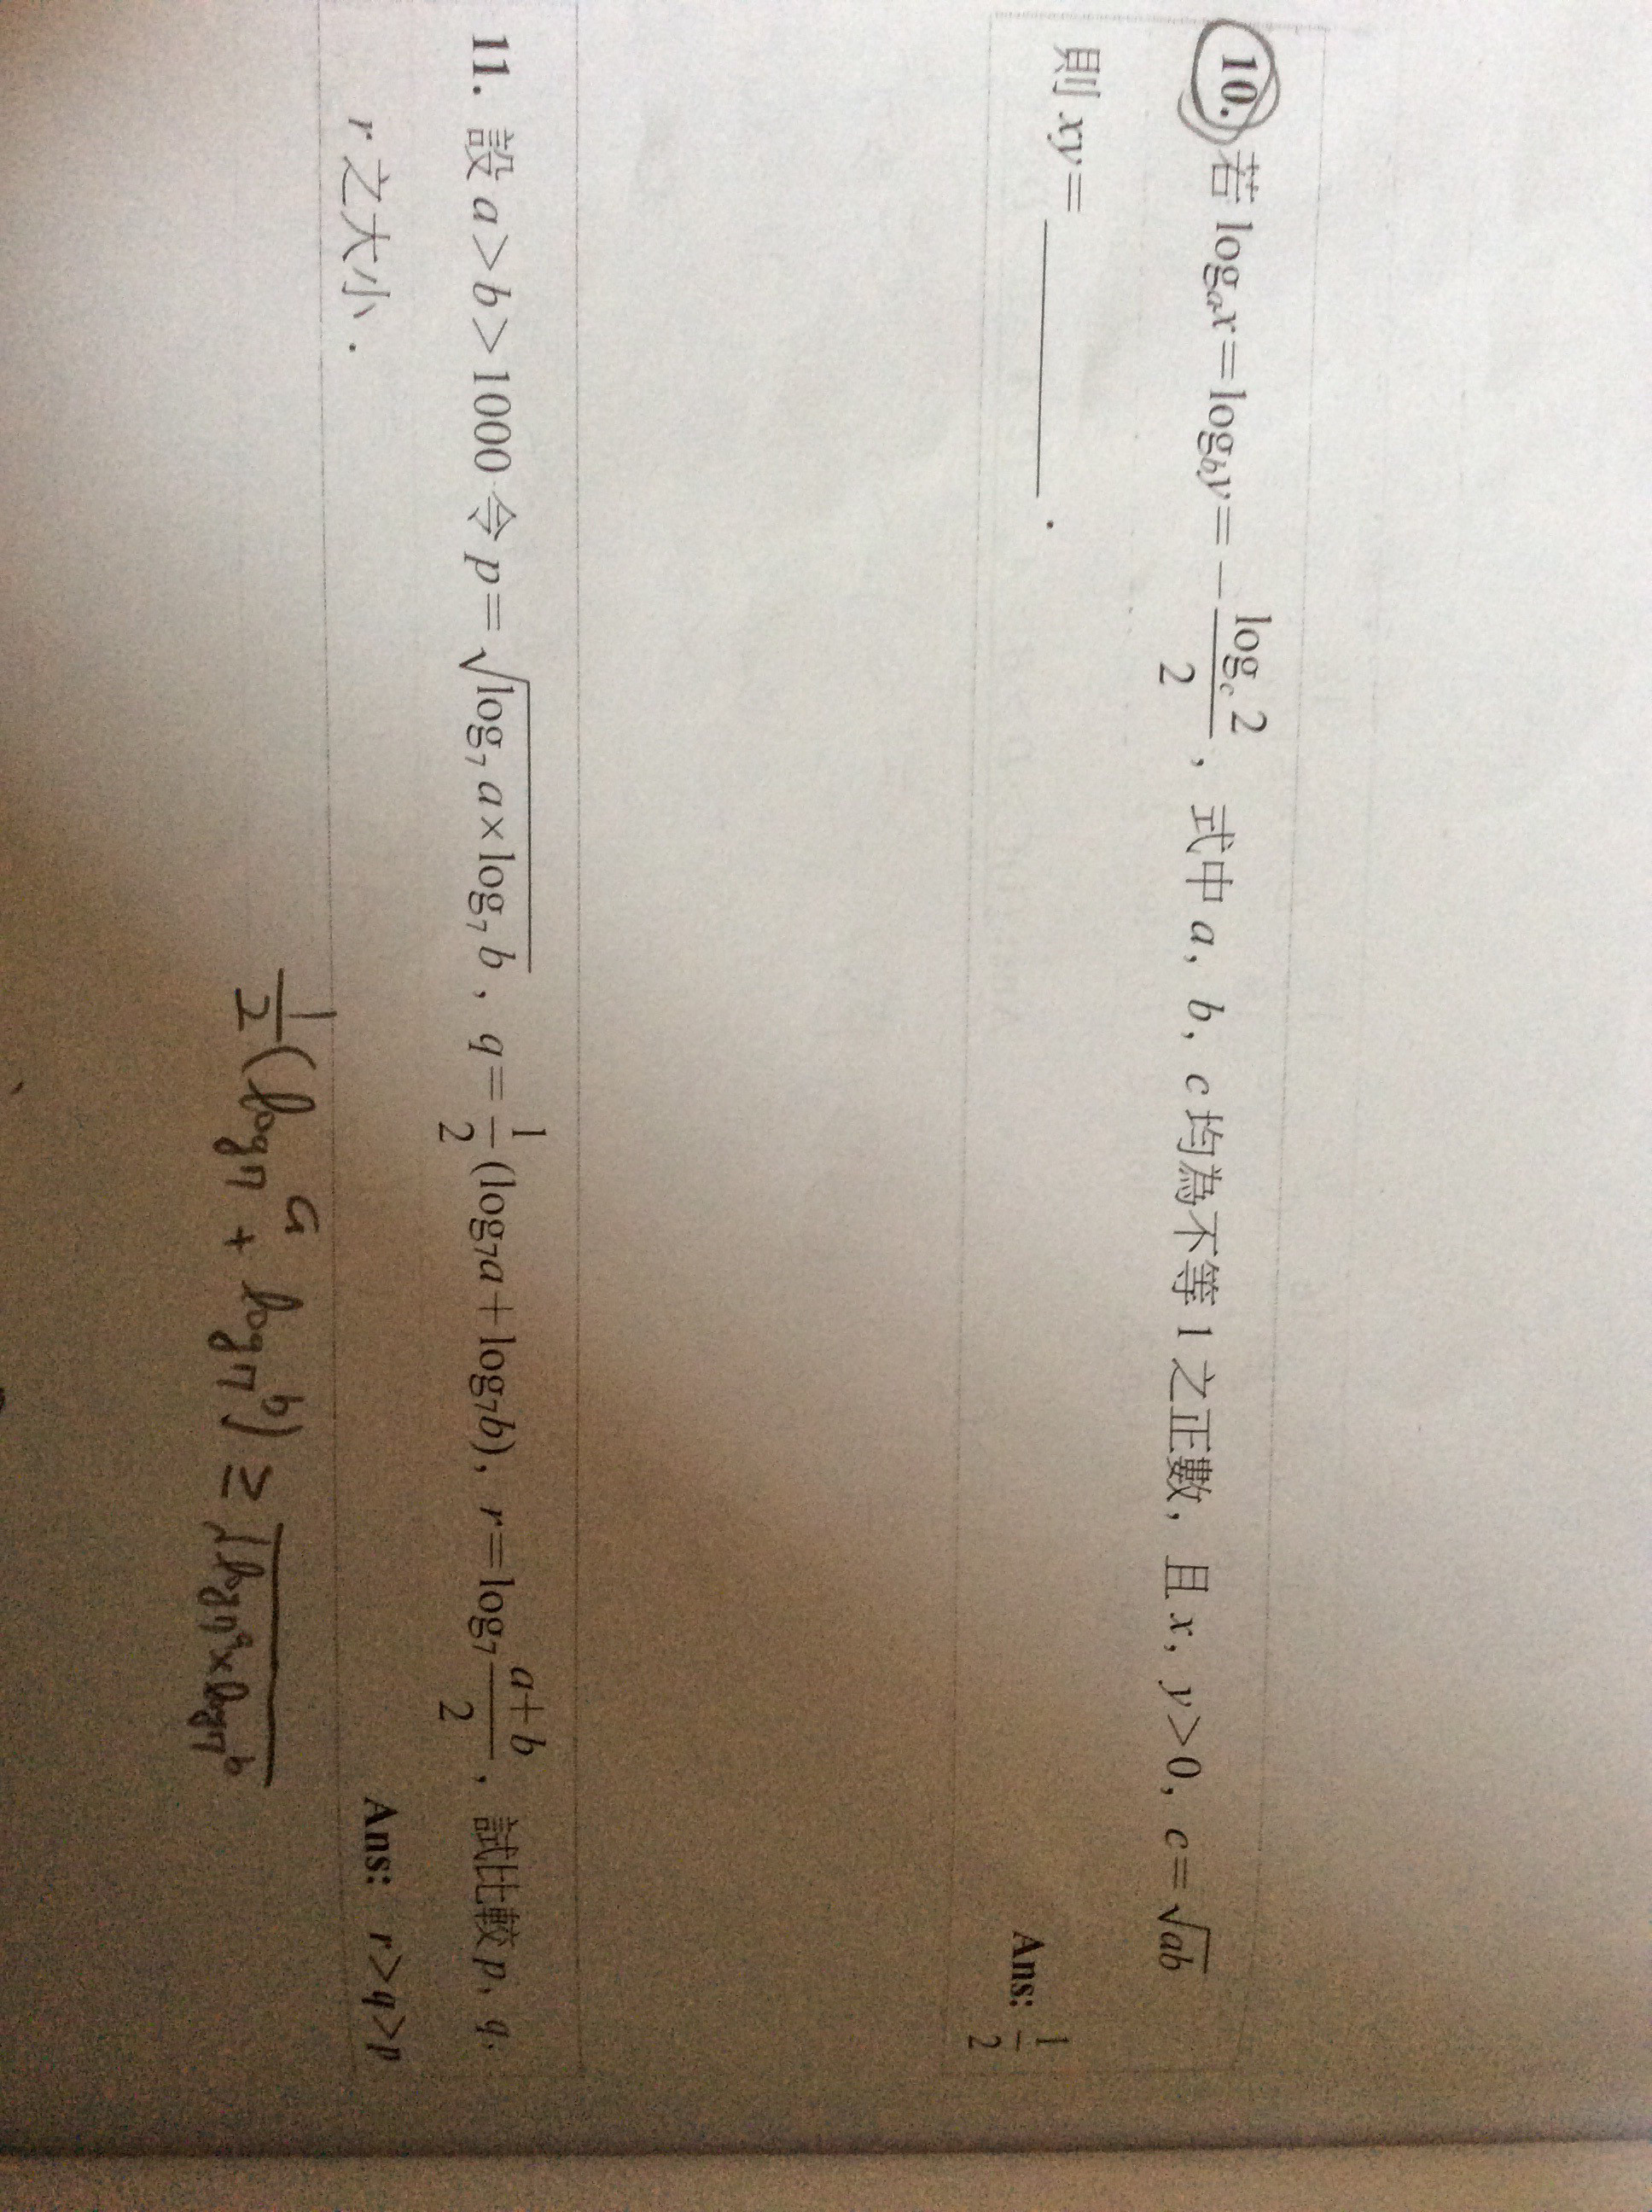 10. 若 logₐx=log_b y=−log_c 2/2, 式中 a, b, c 均為不等 1 之正數, 且 x, y>0, c=√ab
則 xy=________.
Ans: 1/2
11. 設 a>b>1000 令 p=√(log₇ a×log₇ b), q=1/2(log₇a+log₇b), r=log₇ (a+b)/2, 試比較 p, q,
r 之大小.
Ans: r>q>p
1/2(log₇ a + log₇ b) ≥ √(log₇ a×log₇ b)